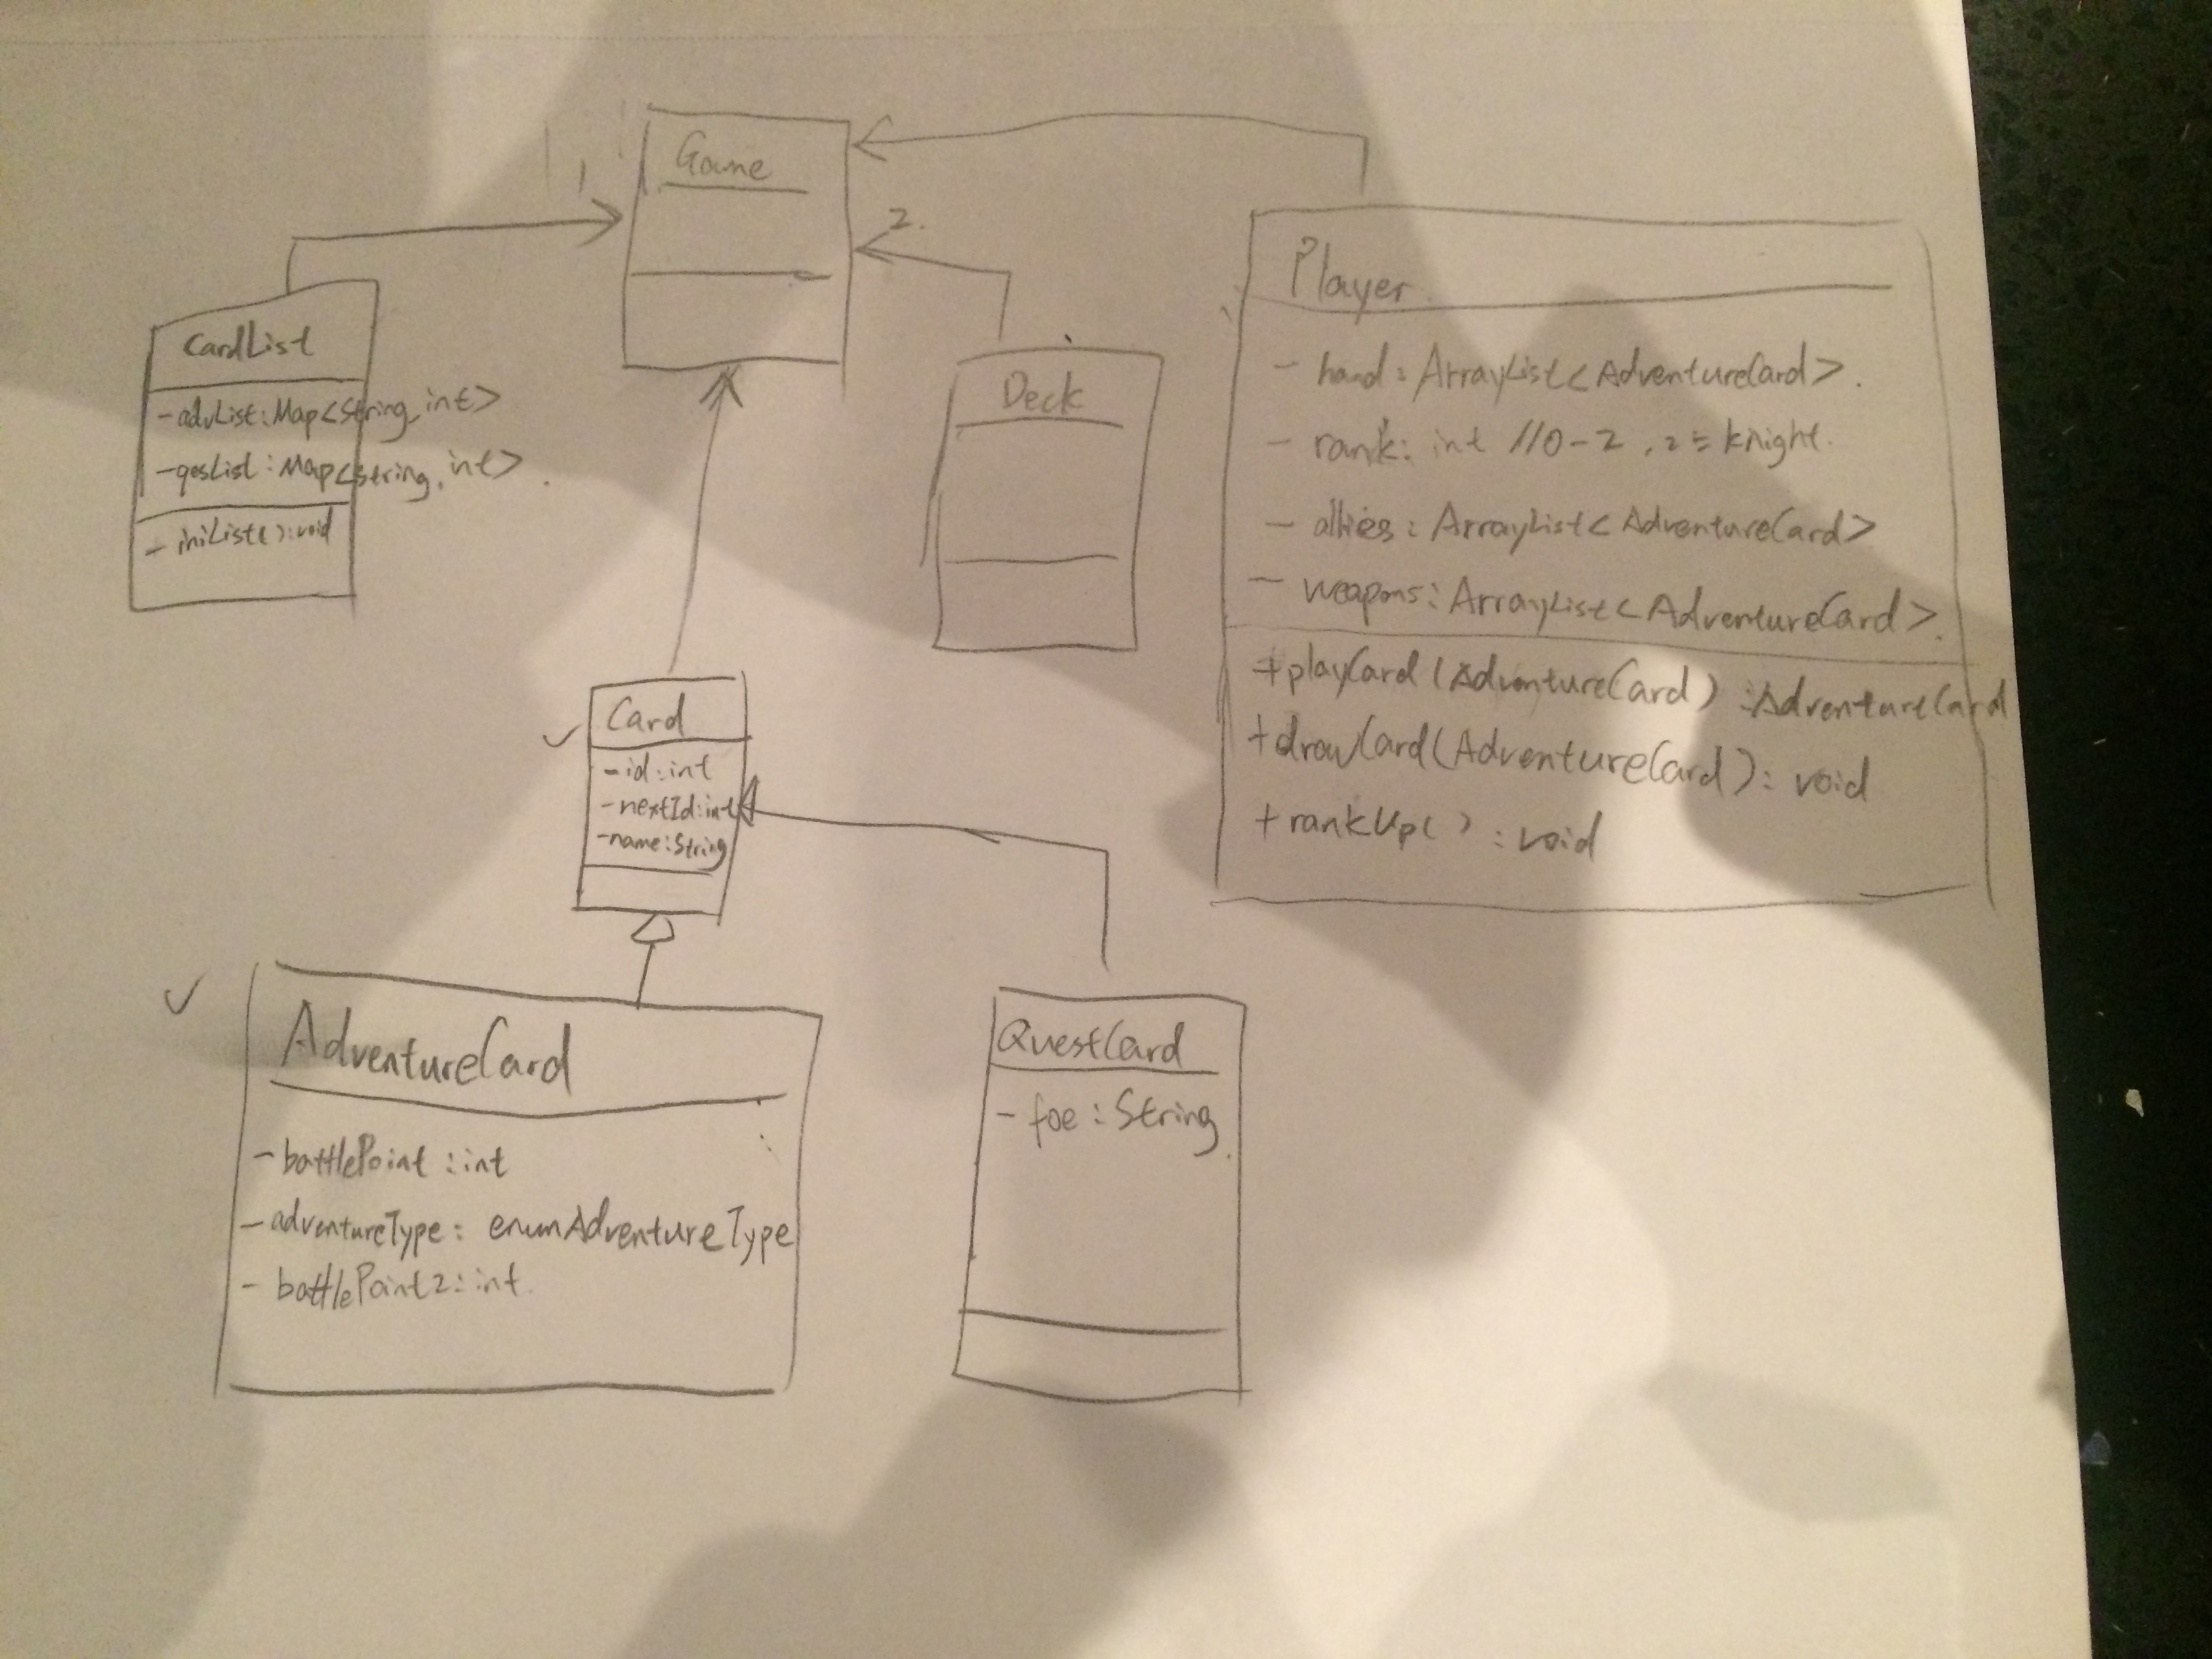 Game
1
2.
CardList
-advList:Map<String, int>
-qesList:Map<String, int>.
- iniList():void
Deck
Player
- hand: ArrayList<AdventureCard>.
- rank: int //0-2, 2=knight.
- allies: ArrayList<AdventureCard>
- weapons: ArrayList<AdventureCard>.
+playCard(AdventureCard):AdventureCard
+drawCard(AdventureCard): void
+rankUp(): void
Card
-id:int
-nextId:int
-name:String
AdventureCard
-battlePoint:int
-adventureType: enumAdventureType
- battlePoint2:int.
QuestCard
- foe:String.